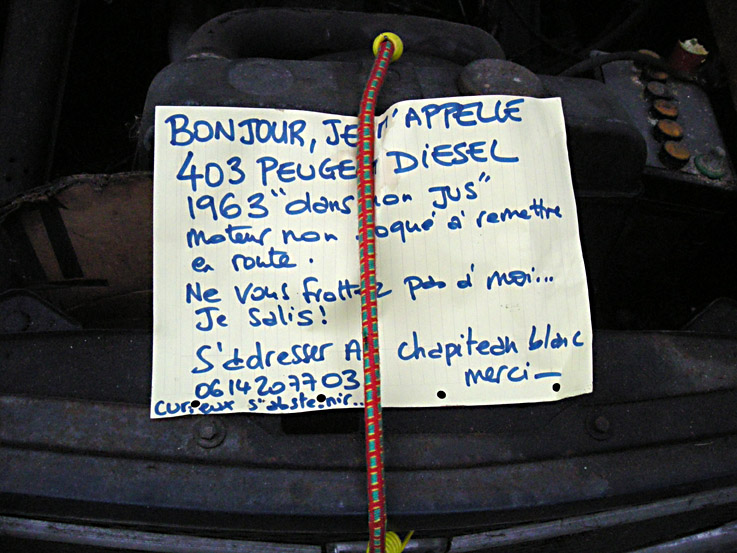 BONJOUR, JE M'APPELLE
403 PEUGEOT DIESEL
1963 "dans son JUS"
moteur non bloqué à remettre
en route.
Ne vous frottez pas à moi...
Je salis!
S'adresser Au chapiteau blanc
0614207703 merci —
curieux s'abstenir..